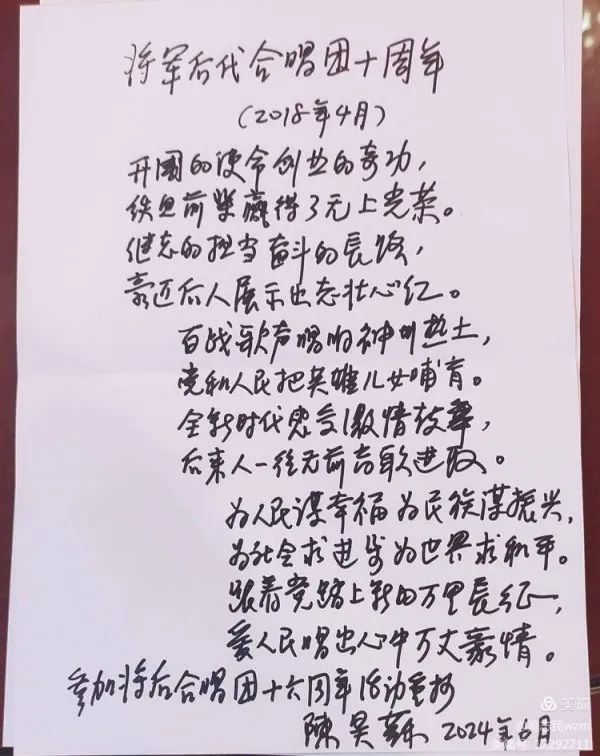 将军后代合唱团十周年
(2018年4月)
开国的使命创业的奇功,
铁血前辈赢得了无上光荣。
继志的担当奋斗的長路,
豪迈后人展示出志壮心红。
百战歌声唱响神州热土,
党和人民把英雄儿女哺育。
全新时代感受激情鼓舞,
后来人一往无前高歌进取。
为人民谋幸福为民族谋振兴,
为社会求进步为世界求和平。
跟着党踏上新的万里長征,
爱人民唱出心中万丈豪情。
参加将后合唱团十六周年活动重抄
陳昊蘇 2024年6月
美篇